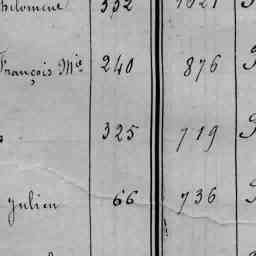 332
François Mie 240 876
325 719
Julien 66 736